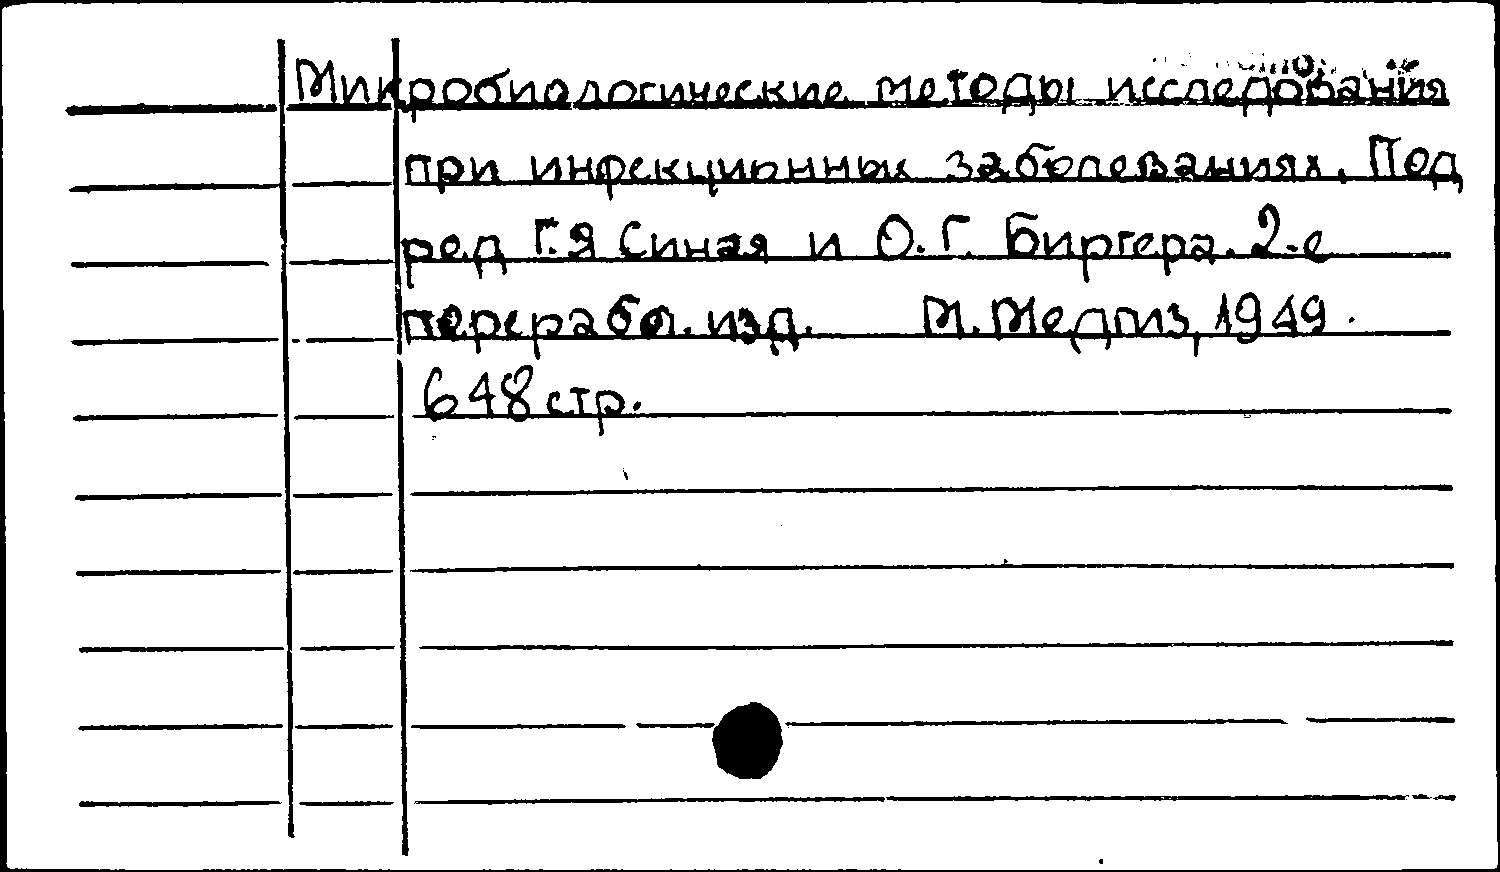 Микробиологические методы исследования
при инфекционных заболеваниях. Под
ред Г.Я Синая и О.Г. Биргера. 2-е
перерабо. изд. М. Медгиз, 1949.
648 стр.